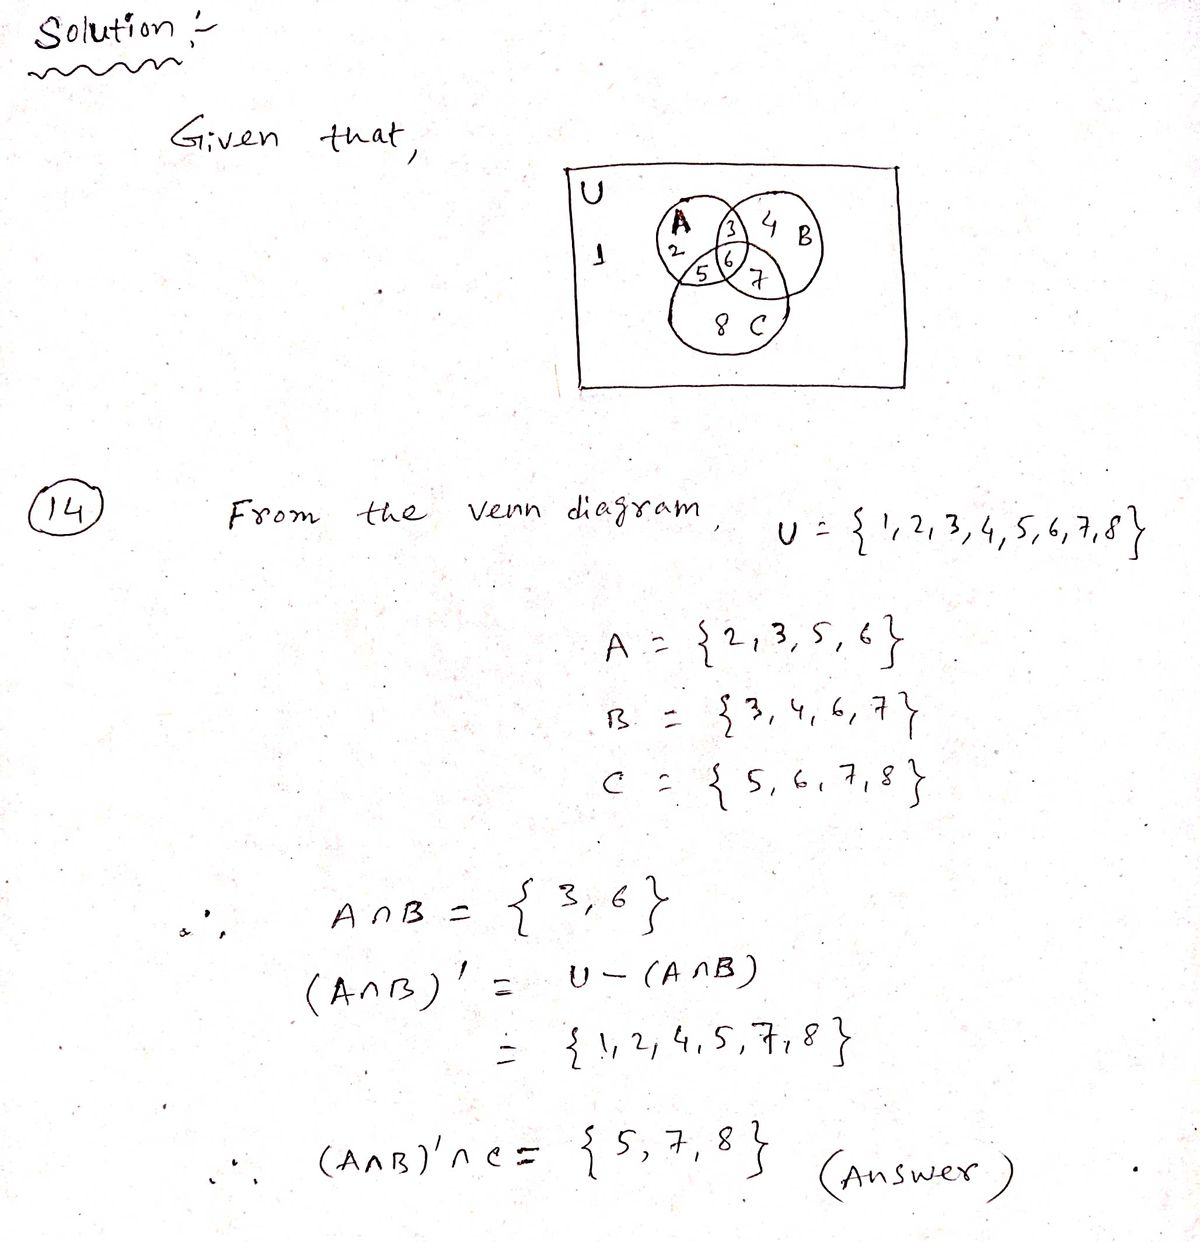 Solution :-
Given that,
U
A 3 4 B
1 2 6
5 7
8 C
14 From the venn diagram, U = { 1, 2, 3, 4, 5, 6, 7, 8 }
A = { 2, 3, 5, 6 }
B = { 3, 4, 6, 7 }
C = { 5, 6, 7, 8 }
∴ A∩B = { 3, 6 }
(A∩B)' = U - (A∩B)
= { 1, 2, 4, 5, 7, 8 }
∴ (A∩B)'∩C = { 5, 7, 8 } (Answer)